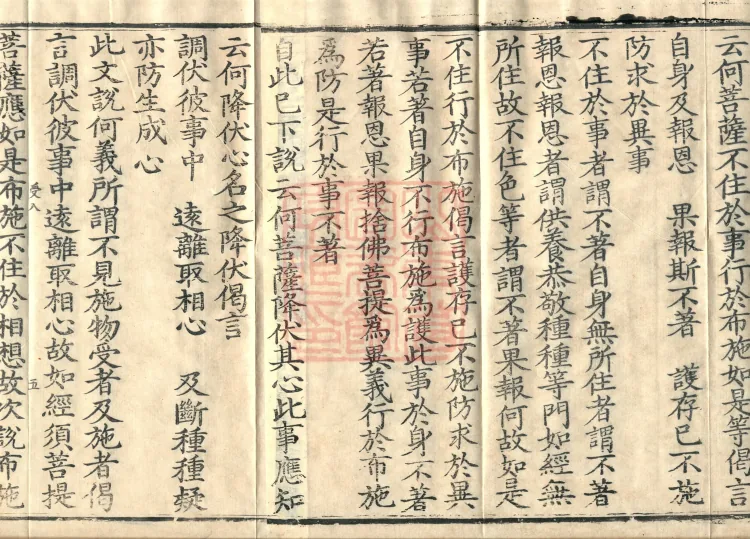 云何菩薩不住於事行於布施如是等偈言
自身及報恩 果報斯不著 護存已不施
防求於異事
不住於事者謂不著自身無所住者謂不著
報恩報恩者謂供養恭敬種種等門如經無
所住故不住色等者謂不著果報何故如是
不住行於布施偈言護存已不施防求於異
事若著自身不行布施為護此事於身不著
若著報恩果報捨佛菩提為異義行於布施
為防是行於事不著
自此已下說云何菩薩降伏其心此事應知
云何降伏心名之降伏偈言
調伏彼事中 遠離取相心 及斷種種疑
亦防生成心
此文說何義所謂不見施物受者及施者偈
言調伏彼事中遠離取相心故如經須菩提
受八 五
菩薩應如是布施不住於相想故次說布施